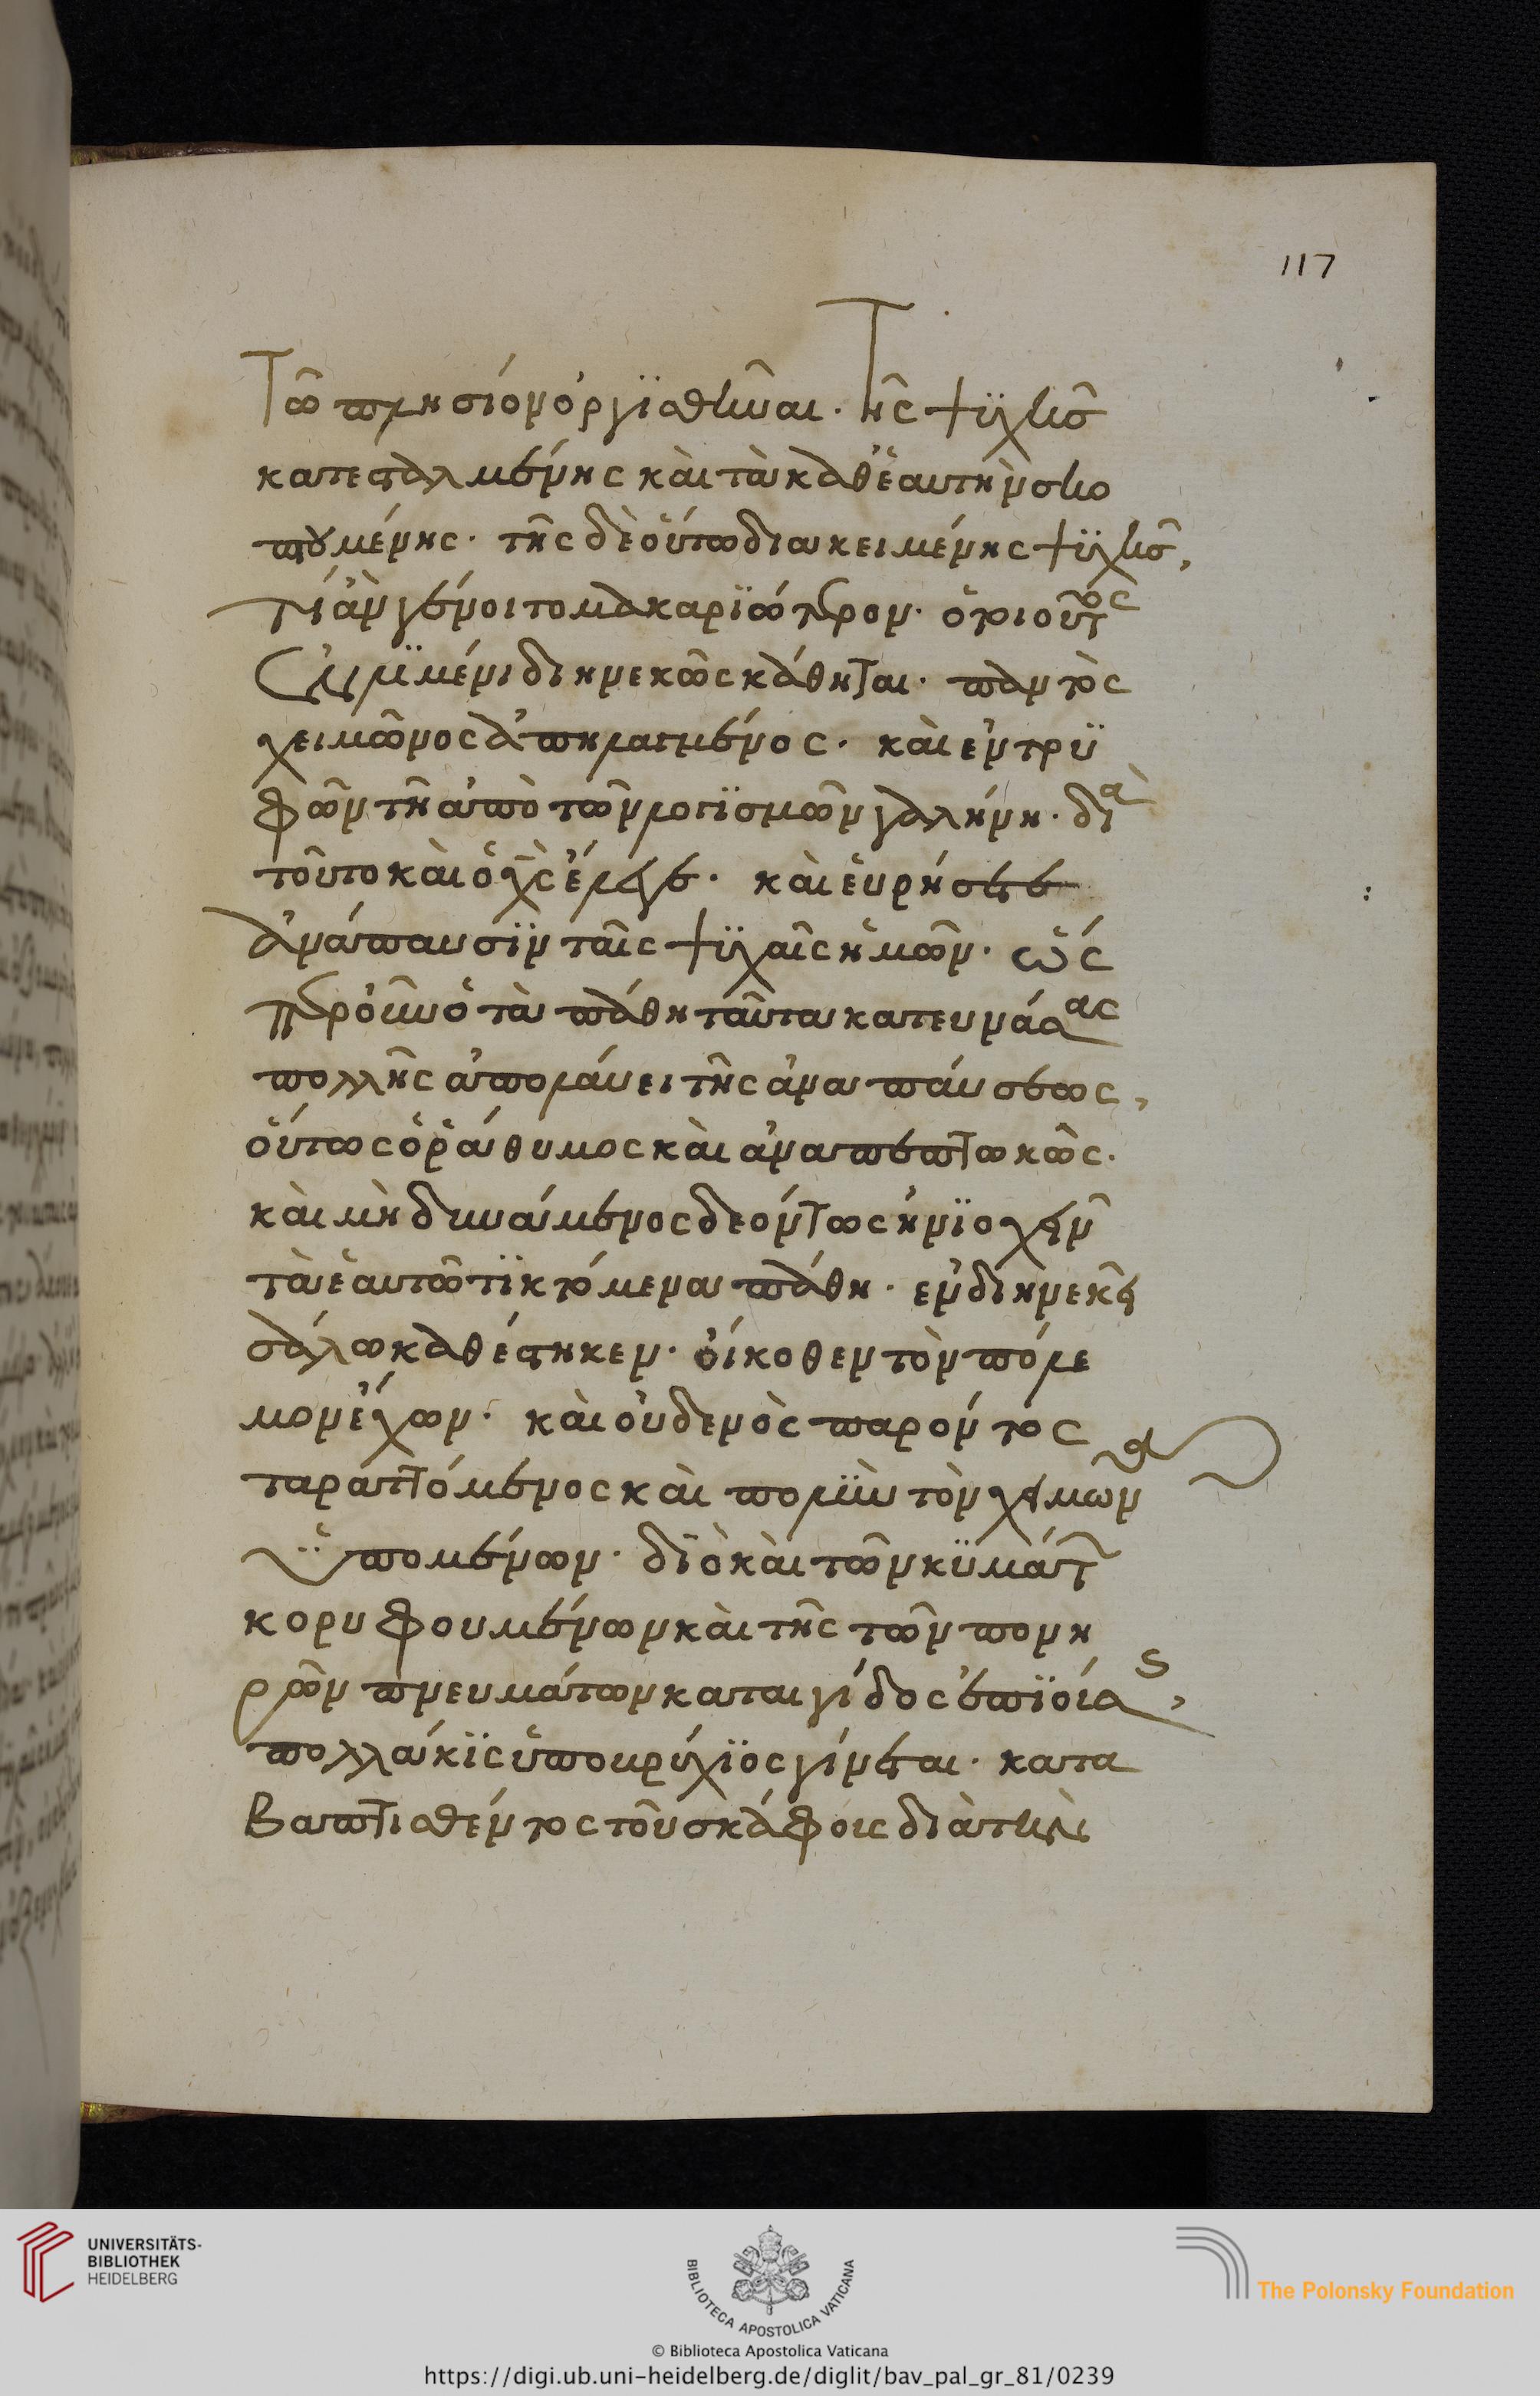 117
Τῶ πλησίον ὀργισθῆναι· τῆς ψυχῆς
κατεσταλμένης καὶ τὰ καθ' ἑαυτὴν σκο
πουμένης· τῆς δὲ οὕτω διακειμένης ψυχῆς,
τί ἂν γένοιτο μακαριώτερον· ὁ τοιοῦτος
ἐν λϊμένι διηνεκῶς κάθηται· παντὸς
χειμῶνος ἀπηλλαγμένος· καὶ ἐντρυ
φῶν τῆ ἀπὸ τῶν λογισμῶν γαλήνη· διὰ
τοῦτο καὶ ὁ χς ἔλεγε· καὶ εὑρήσετε
ἀνάπαυσιν ταῖς ψυχαῖς ἡμῶν· ὥς
περ οὖν ὁ τὰ πάθη ταῦτα κατευνάσας
πολλῆς ἀπολαύει τῆς ἀναπαύσεως,
οὕτως ὁ ῥάθυμος καὶ ἀναπεπτωκῶς·
καὶ μὴ δυνάμενος δεόντως ἡνιοχεῖν
τὰ ἑαυτῶ τικτόμενα πάθη· ἐν διηνεκεῖ
σάλω καθέστηκεν· οἴκοθεν τὸν πόλε
μον ἔχων· καὶ οὐδενὸς παρόντος
ταραττόμενος καὶ πολὺν τὸν χειμῶνα
ὑπομένων· διὸ καὶ τῶν κυμάτων
κορυφουμένων καὶ τῆς τῶν πονη
ρῶν πνευμάτων καταιγίδος ἐπιούσης,
πολλάκις ὑποβρύχιος γίνεται· κατα
βαπτισθέντος τοῦ σκάφους διὰ τὴν
UNIVERSITÄTS-
BIBLIOTHEK
HEIDELBERG
BIBLIOTECA APOSTOLICA VATICANA
The Polonsky Foundation
© Biblioteca Apostolica Vaticana
https://digi.ub.uni-heidelberg.de/diglit/bav_pal_gr_81/0239